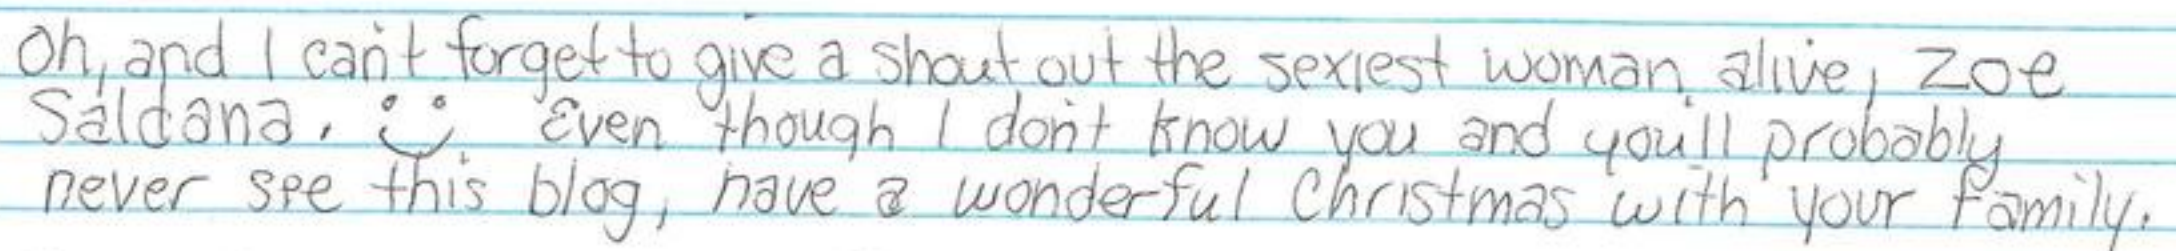 Oh, and I can't forget to give a shout out the sexiest woman alive, Zoe
Saldana. :) Even though I don't know you and you'll probably
never see this blog, have a wonderful Christmas with your family.